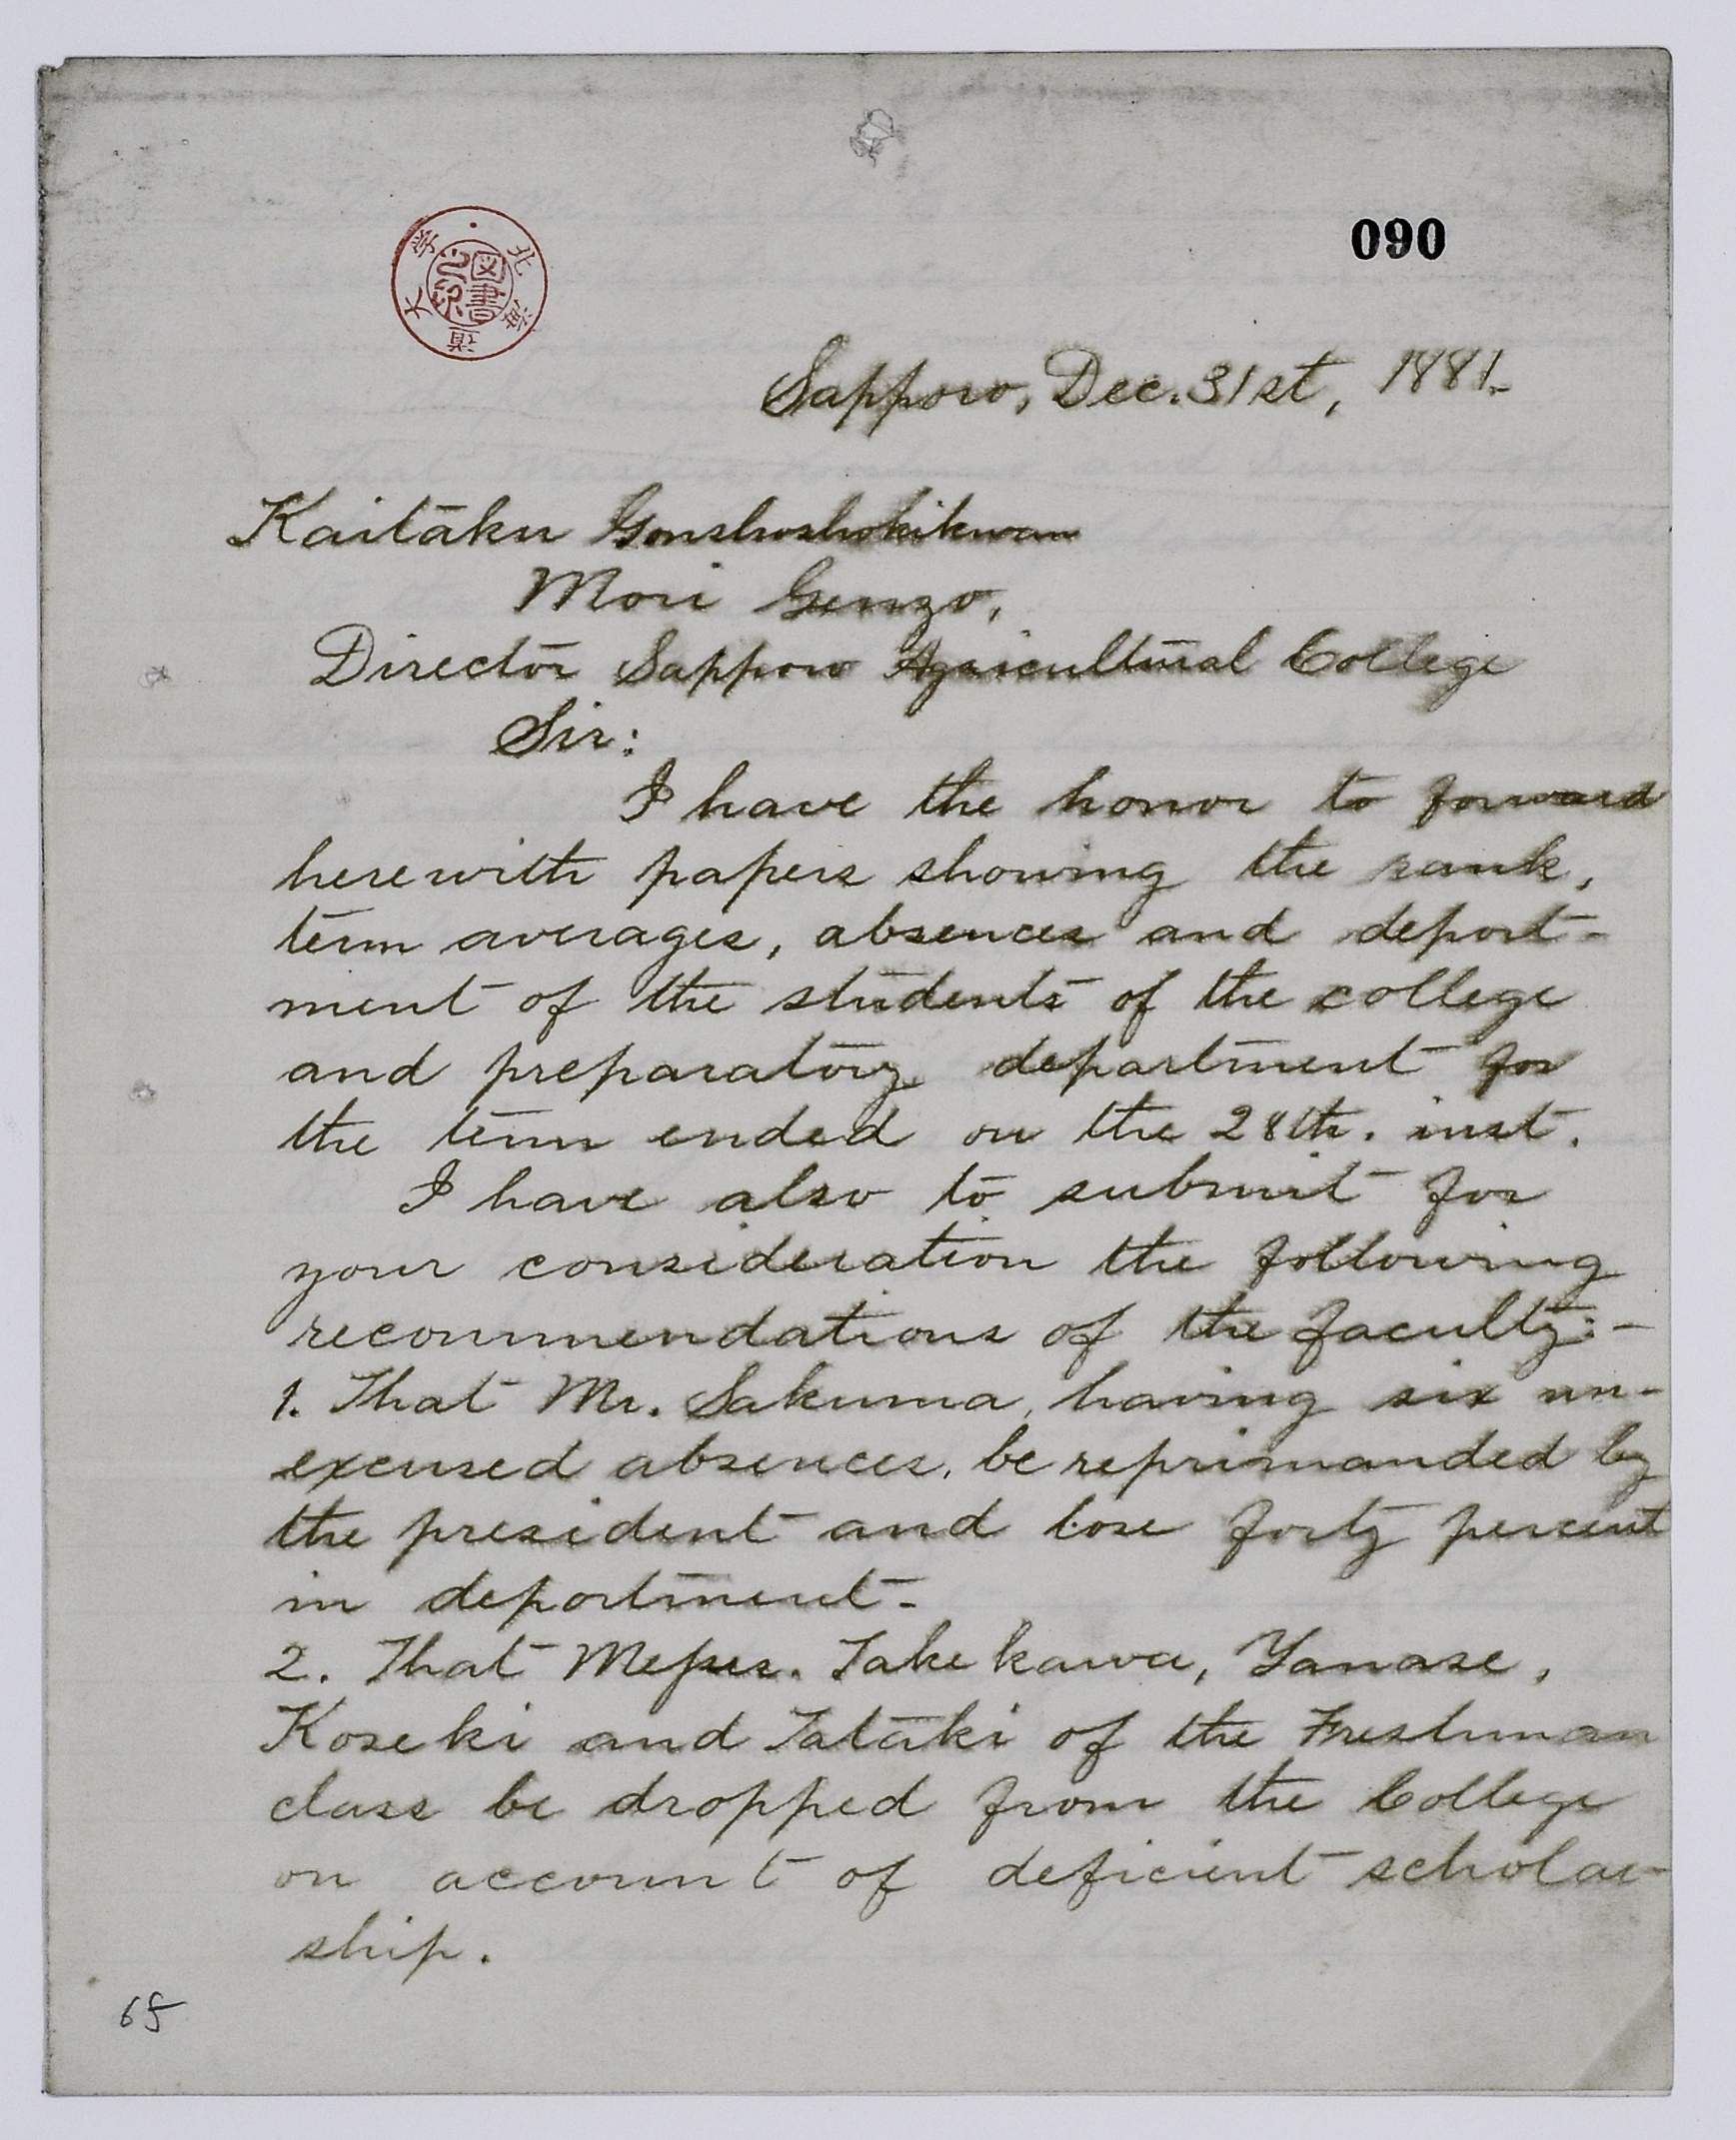 090
北海道大学
図書之印
Sapporo, Dec. 31st, 1881.
Kaitaku Gonshoshokikwan
Mori Genzo,
Director Sapporo Agricultural College
Sir:
I have the honor to forward
herewith papers showing the rank,
term averages, absences and deport-
ment of the students of the college
and preparatory department for
the term ended on the 28th. inst.
I have also to submit for
your consideration the following
recommendations of the faculty:-
1. That Mr. Sakuma, having six un-
excused absences, be reprimanded by
the president and lose forty percent
in deportment.
2. That Messrs. Takekawa, Yanase,
Koseki and Tataki of the Freshman
class be dropped from the College
on account of deficient scholar-
ship.
65